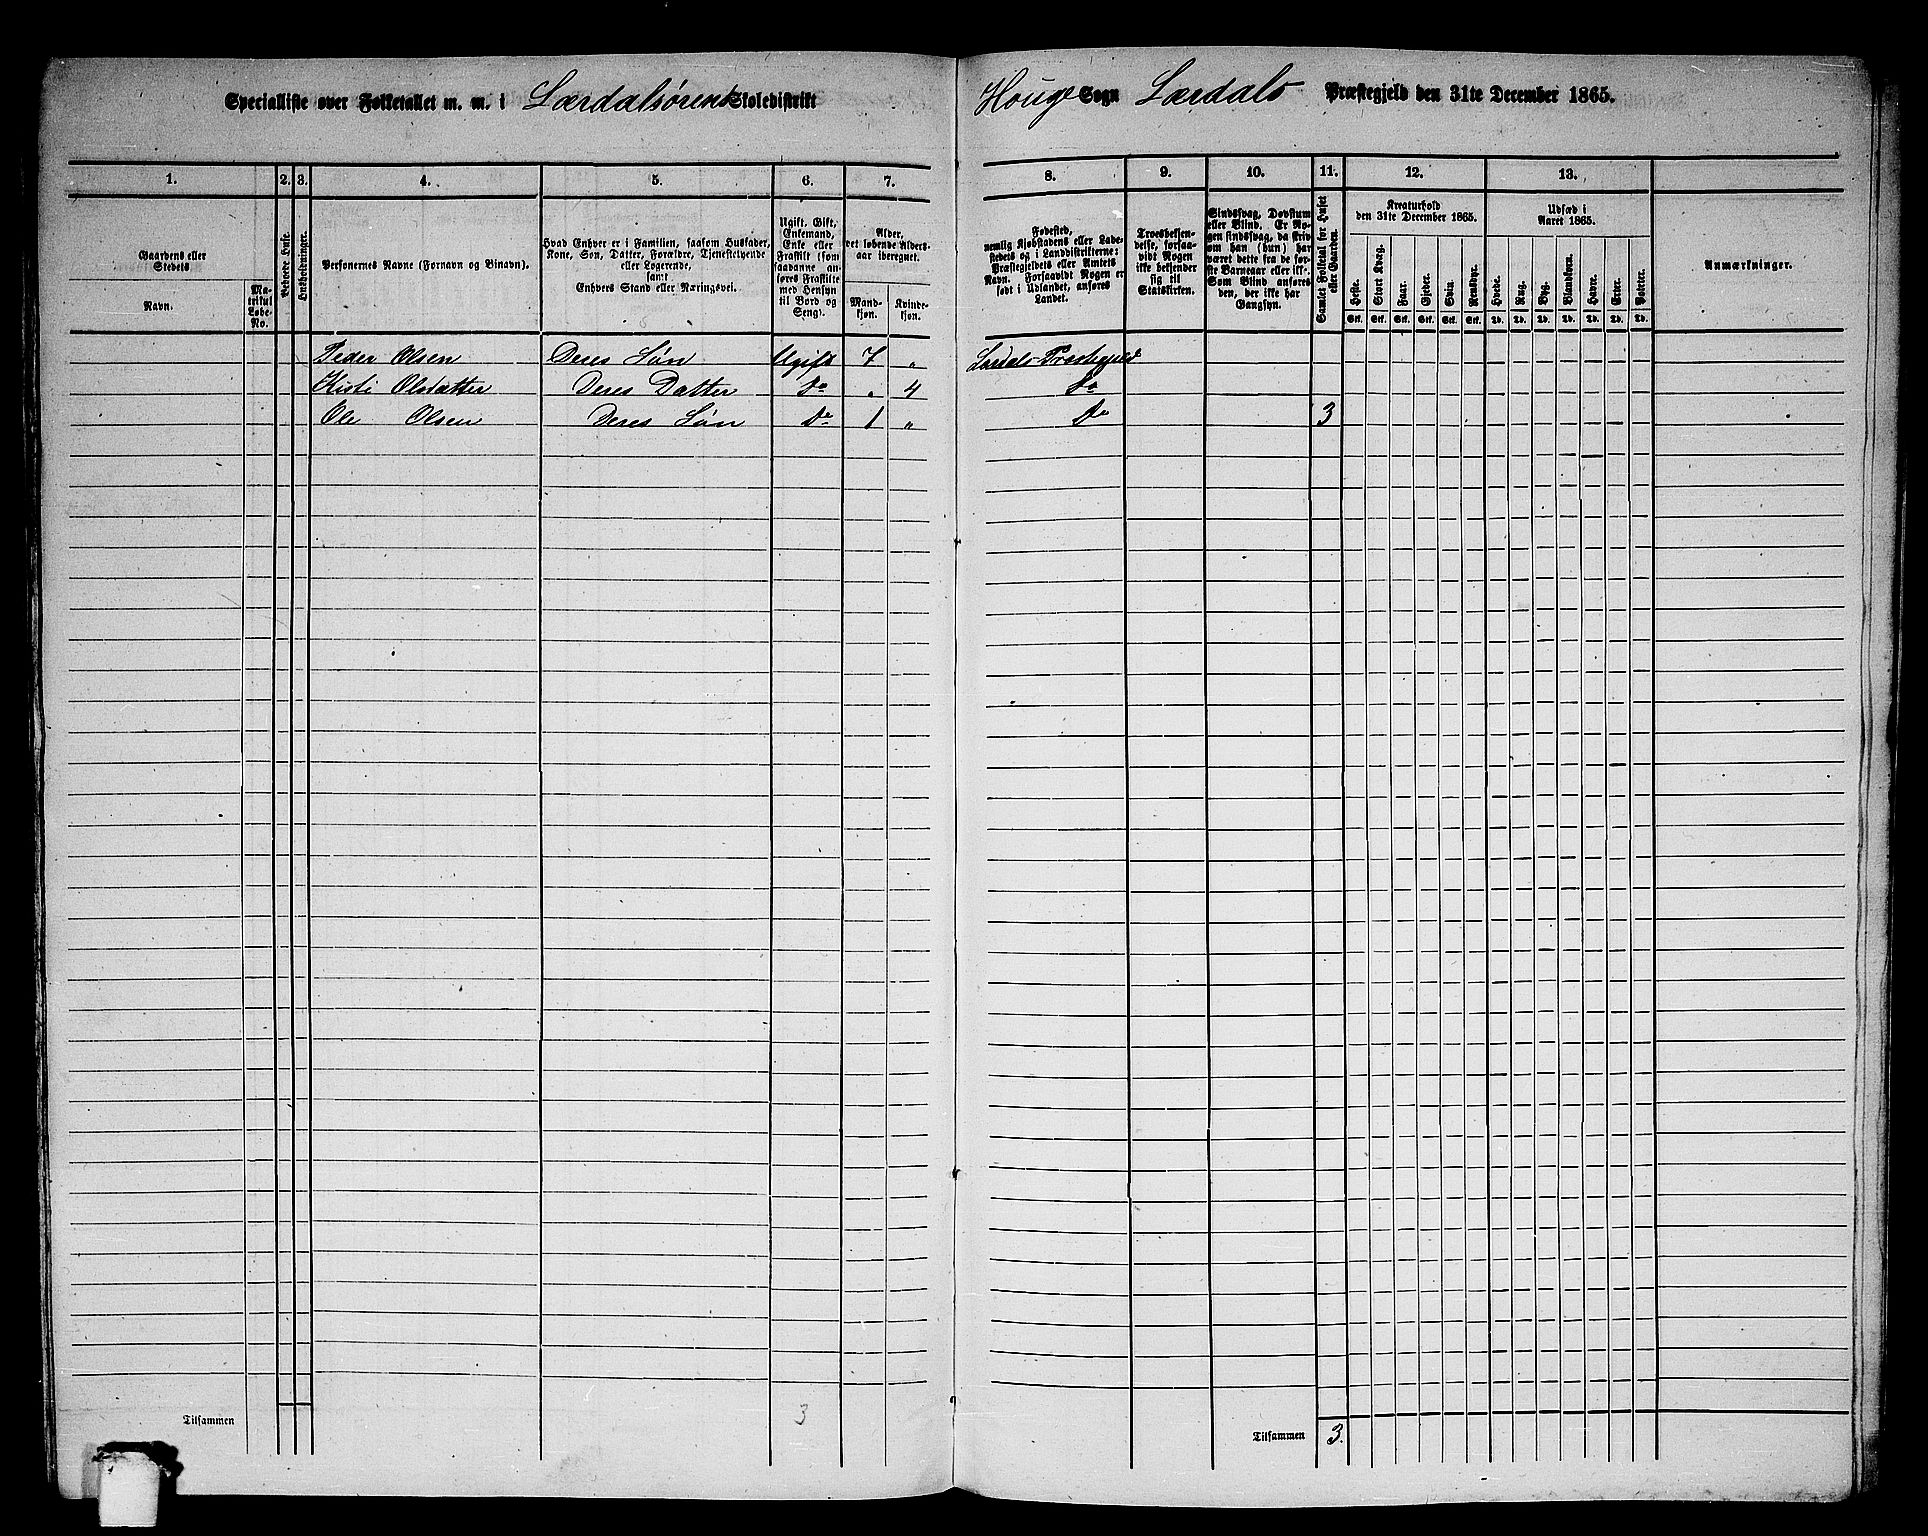 Specialliste over Folketallet m. m. i Lærdalsørens Skoledistrikt Houge Sogn Lærdals Præstegjeld den 31te December 1865.
1. 2. 3. 4. 5. 6. 7. 8. 9. 10. 11. 12. 13.
Gaardens eller Stedets
Navn.
Matrikul Løbe-No.
Beboede Huse.
Huusholdninger.
Personernes Navne (Fornavn og Binavn).
Hvad Enhver er i Familien, saasom Husfader,
Kone, Søn, Datter, Forældre, Tjenestetyende
eller Logerende,
samt
Enhvers Stand eller Næringsvei.
Ugift, Gift,
Enkemand,
Enke eller
Fraskilt (som
saadanne an-
føres Fraskilte
med Hensyn
til Bord og
Seng).
Alder,
det løbende Alders-
aar iberegnet.
Mand-
kjøn.
Kvinde-
kjøn.
Fødested,
nemlig Kjøbstadens eller Lade-
stedets og i Landdistrikterne:
Præstegjeldets eller Amtets
Navn. Forsaavidt Nogen er
født i Udlandet, anføres
Landet.
Troesbekjen-
delse, forsaa-
vidt Nogen
ikke bekjender
sig til
Statskirken.
Sindssvag, Døvstum
eller Blind. Er No-
gen sindssvag, da skriv
om han (hun) har
været dette fra de før-
ste Barneaar eller ikke.
Som Blind anføres
den, der ikke har
Gangsyn.
Samlet Folketal for Huset
eller Gaarden.
Kreaturhold
den 31te December 1865.
Heste. Stort Kvæg. Faar. Gjeder. Svin. Rensdyr.
Stk. Stk. Stk. Stk. Stk. Stk.
Udsæd i
Aaret 1865.
Hvede. Rug. Byg. Blandkorn. Havre. Erter. Poteter.
Td. Td. Td. Td. Td. Td. Td.
Anmærkninger.
Peder Olsen Deres Søn Ugift 7 " Lærdals Præstegjeld
Kisti Olsdatter Deres Datter Do " 4 Do
Ole Olsen Deres Søn Do 1 " Do 3
Tilsammen 3 Tilsammen 3.